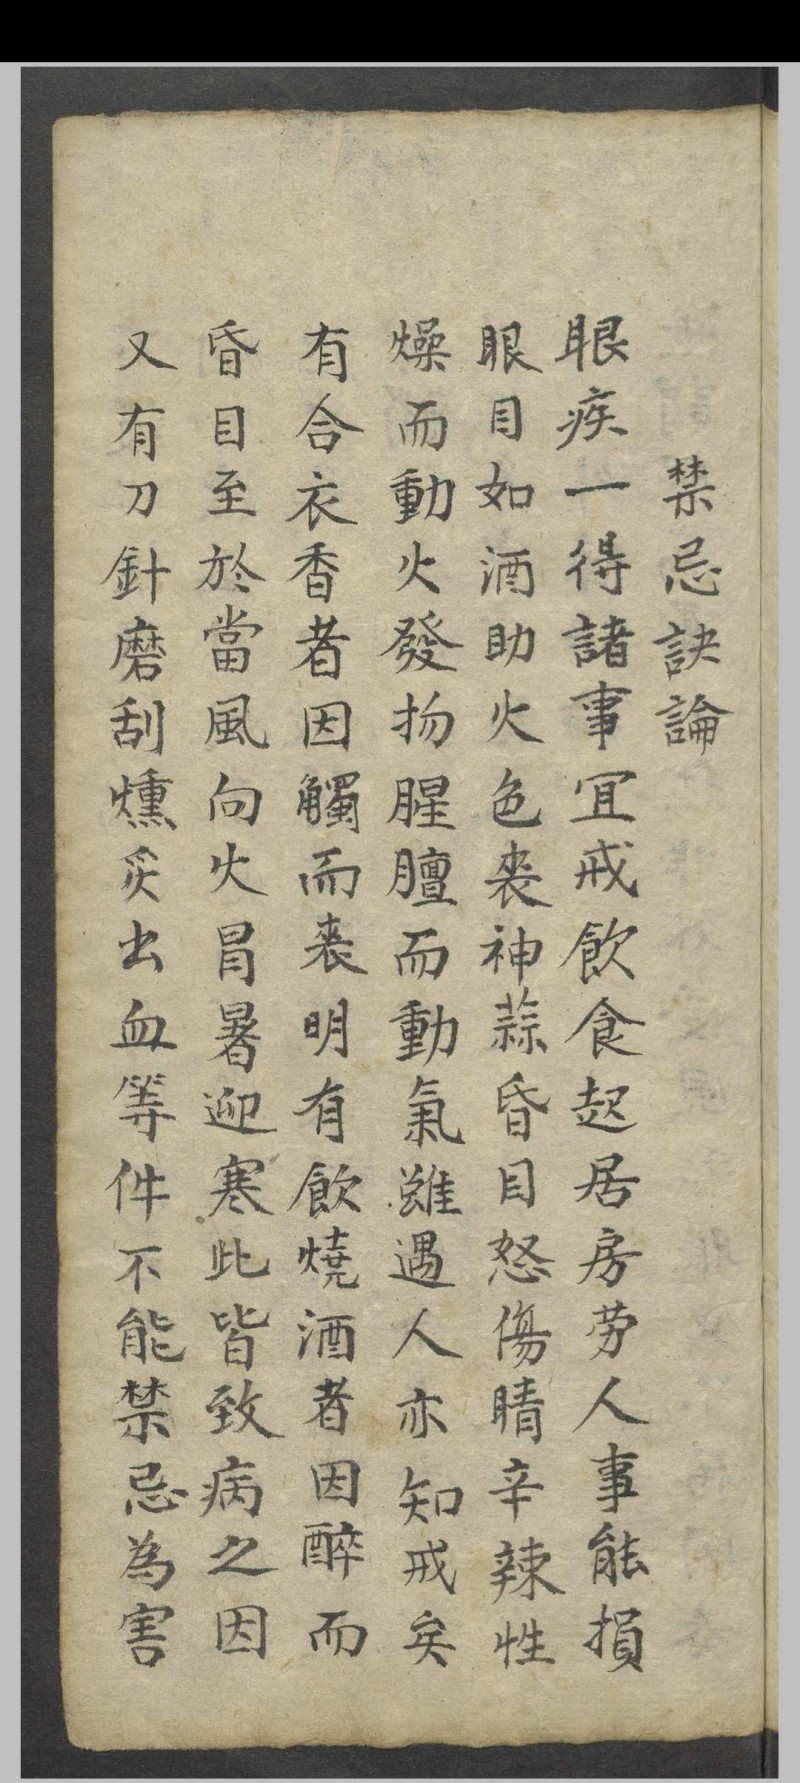 禁忌訣論
眼疾一得諸事宜戒飲食起居房劳人事能損
眼目如酒助火色丧神蒜昏目怒傷睛辛辣性
燥而動火發扬腥膻而動氣雖遇人亦知戒矣
有合衣香者因觸而丧明有飲燒酒者因醉而
昏目至於當風向火冒暑迎寒此皆致病之因
又有刀針磨刮燻炙出血等件不能禁忌為害